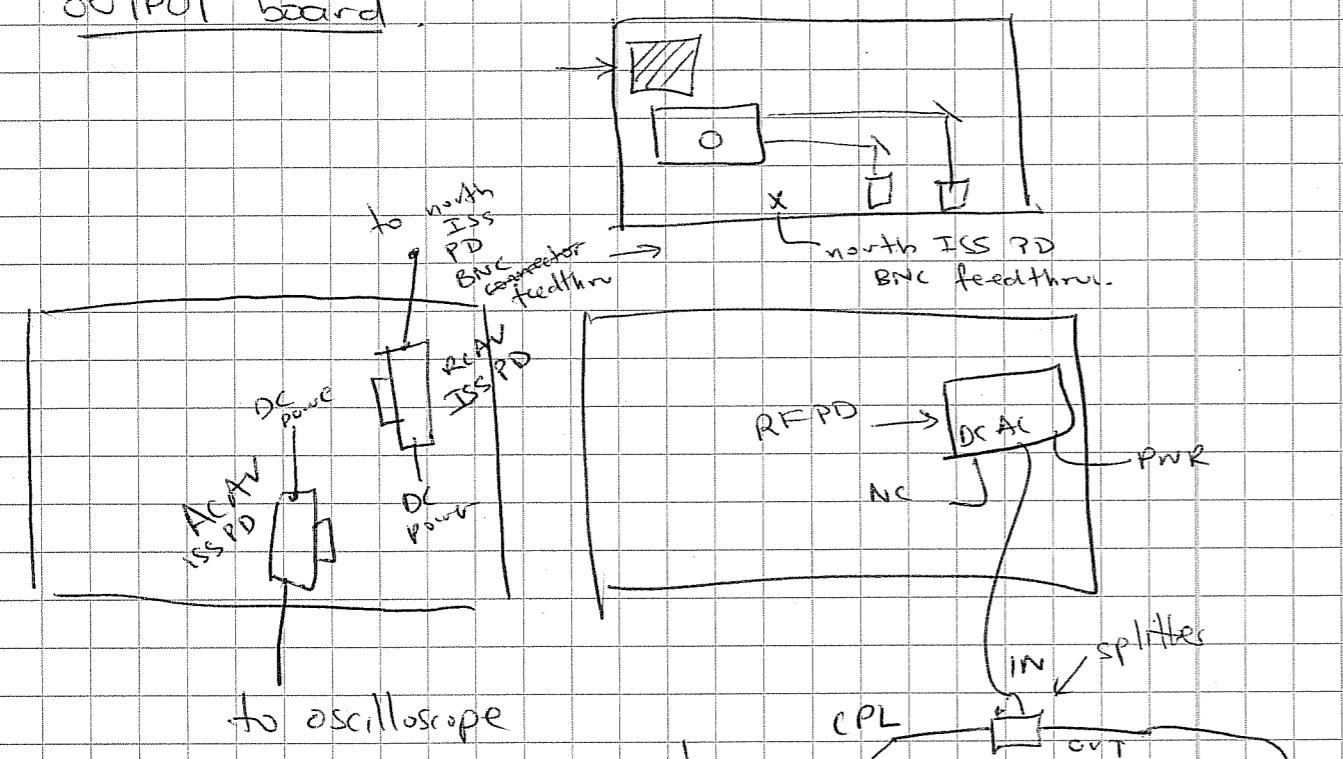 OUTPUT board.
to north
ISS
PD
BNC connector
feedthru
north ISS PD
BNC feedthru.
RCAV
ISS PD
DC
power
DC
power
ACAV
ISS PD
to oscilloscope
RFPD
DC AC
PWR
NC
IN
splitter
CPL
OUT